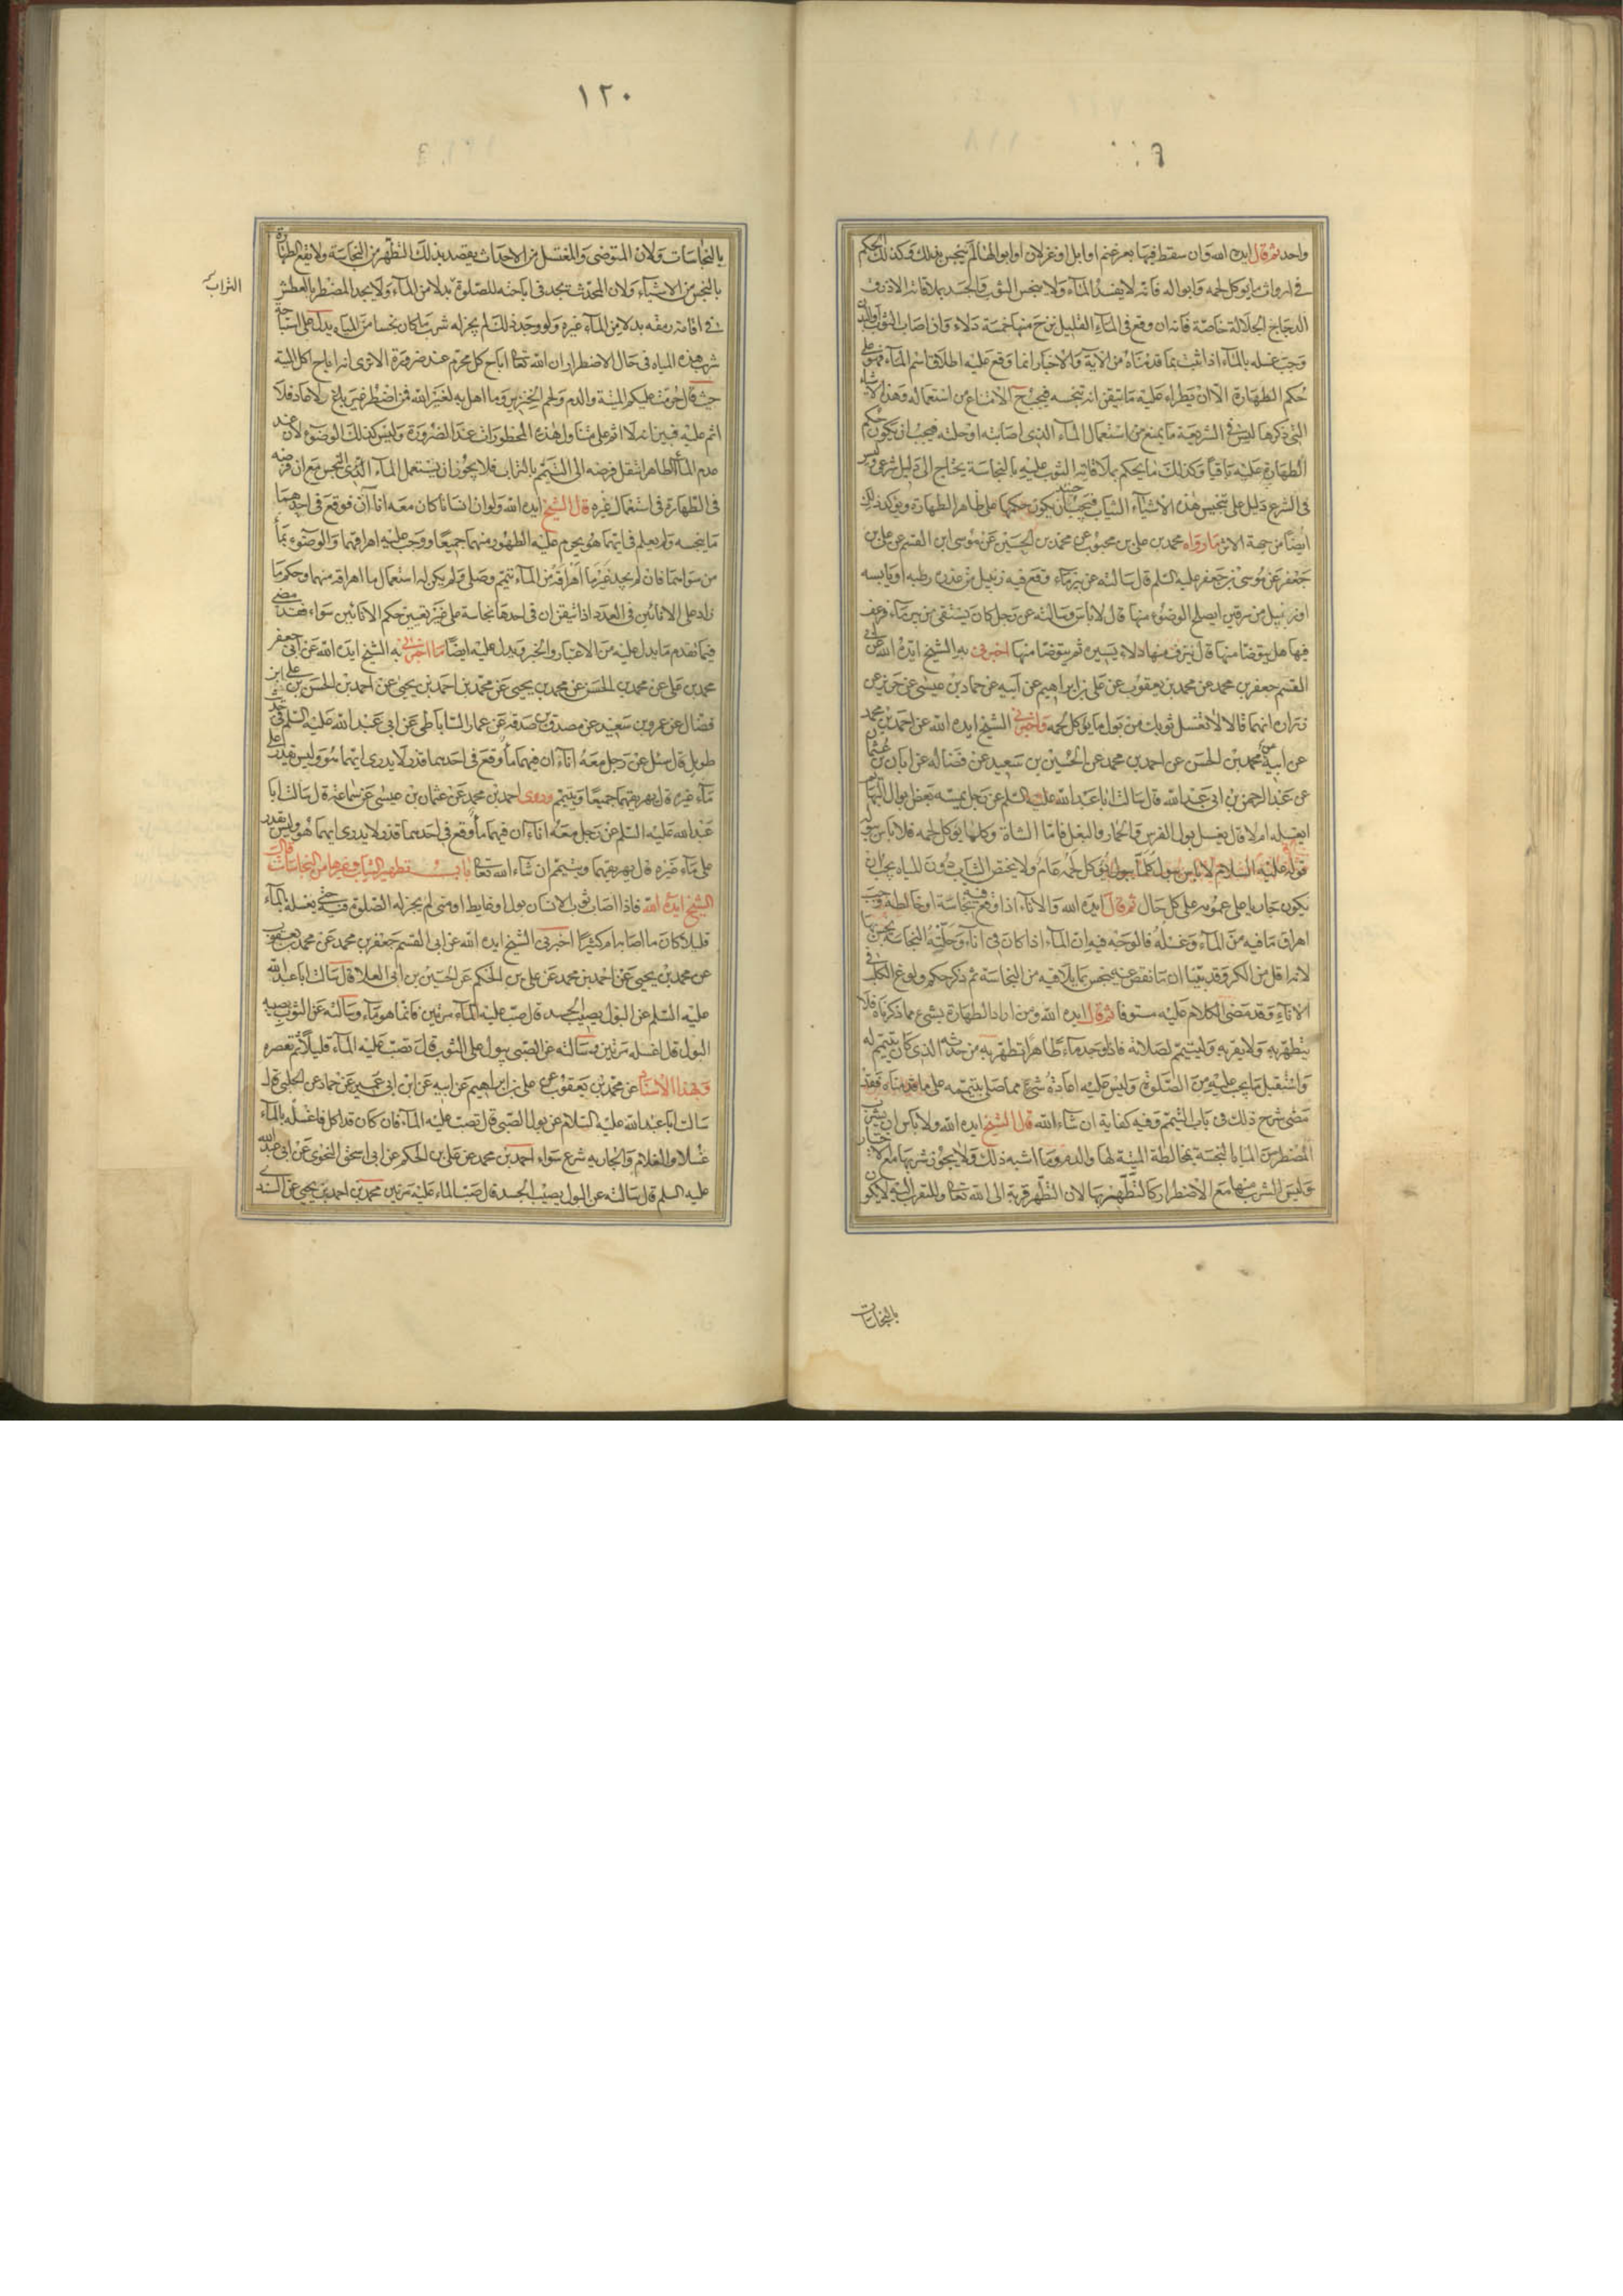 واحد ثم قال ايده الله وان سقط فيها بعر غنم او ابل او غزلان او ابوالها لم ينجس بذلك وكذلك الحكم
في ارواث ما يؤكل لحمه وابواله فانه لا يفسد المآء ولا ينجس الثوب والجسد بملاقاته الا ذرق
الدجاج الجلالة خاصة فانه ان وقع فى المآء القليل نزح منها خمسة دلاء وان اصاب الثوب او البدن
وجب غسله بالمآء اذا ثبت بما قدمناه من الآية والاخبار انما وقع عليه اطلاق اسم المآء فهو على
حكم الطهارة الا ان يطراء عليه ما يتيقن انه ينجسه فيجب ح الامتناع من استعماله وهذه الاشياء
التى ذكرها ليس فى الشريعة ما يمنع من استعمال المآء الذى اصابته او حلته فيجب ان يكون حكم
الطهارة عليه باقيا وكذلك ما يحكم بملاقاته الثوب عليه بالنجاسة يحتاج الى دليل شرعى وليس
فى الشرع دليل على تنجيس هذه الاشياء الثياب فيجب حينئذ ان يكون حكمها على ظاهر الطهارة ويؤكد ذلك
ايضا من جهة الاثر ما رواه محمد بن على بن محبوب عن محمد بن الحسين عن موسى بن القسم عن على بن
جعفر عن موسى بن جعفر عليه السلم قال سالته عن بئر مآء وقع فيه زنبيل من عذرة رطبة او يابسة
او زنبيل من سرقين ايصلح الوضوء منها قال لا باس وسالته عن رجل كان يستقى من بئر مآء فرعف
فيها هل يتوضا منها قال ينزف منها دلاء يسيرة ثم يتوضا منها اخبرنى به الشيخ ايده الله عن ابى
القسم جعفر بن محمد عن محمد بن يعقوب عن على بن ابراهيم عن ابيه عن حماد بن عيسى عن حريز عن
زراة انهما قالا لا تغسل ثوبك من بول ما يؤكل لحمه واخبرنى الشيخ ايده الله عن احمد بن محمد
عن ابيه عن محمد بن الحسن عن احمد بن محمد عن الحسين بن سعيد عن فضالة عن ابان بن عثمان
عن عبد الرحمن بن ابى عبد الله قال سالت ابا عبد الله عليه السلم عن رجل يمسه بعض ابوال البهائم
ايغسله ام لا قال يغسل بول الفرس والحمار والبغل فاما الشاة وكلما يؤكل لحمه فلا باس ببوله
قوله عليه السلام لا باس ببول كلما يؤكل لحمه عام ولا يختص الثياب دون المياه يجب ان
يكون جاريا على عمومه على كل حال ثم قال ايده الله والانآء اذا وقع فيه نجاسة او خالطه وجب
اهراق ما فيه من المآء وغسله فالوجه فيه ان المآء اذا كان فى انآء وحلته النجاسة نجس بها
لانه اقل من الكر وقد بينا ان ما نقص عنه ينجس بما يلاقيه من النجاسة ثم ذكر حكم ولوغ الكلب فى
الانآء وقد مضى الكلام عليه مستوفا ثم قال ايده الله ومن اراد الطهارة بشىء مما ذكرناه فلا
يتطهر به ولا يقربه وليتيمم لصلاته فاذا وجد مآء طاهرا تطهر به من حدثه الذى كان يتيمم له
واستقبل ما يجب عليه من الصلوة وليس عليه اعادة شىء مما صلى بتيممه على ما قدمناه فقد
مضى شرح ذلك فى باب التيمم وفيه كفاية ان شآء الله قال الشيخ ايده الله ولا باس ان يشرب
المضطر من المياه النجسة بمخالطة الميتة لها والدم وما اشبه ذلك ولا يجوز شربها مع الاختيار
وليس الشرب منها مع الاضطرار كالتطهر بها لان التطهر قربة الى الله تعالى والتقرب اليه لا يكون
بالنجاسات
١٢٠
بالنجاسات ولان المتوضى والمغتسل من الاحداث يقصد بذلك التطهر من النجاسة ولا يقع الطهارة
بالنجس من الاشيآء ولان المحدث يجد فى اباحته للصلوة بدلا من المآء ولا يجد المضطر بالعطش
التراب
فى اقامة رمقه بدلا من المآء غيره ولو وجد ذلك لم يجز له شرب ما كان نجسا من المياه يدل على استباحة
شرب هذه المياه فى حال الاضطرار ان الله تعالى اباح كل محرم عند ضرورة الا ترى انه اباح اكل الميتة
حيث قال حرمت عليكم الميتة والدم ولحم الخنزير وما اهل به لغير الله فمن اضطر غير باغ ولا عاد فلا
اثم عليه فبين انه لا اثم على متناول هذه المحظورات عند الضرورة وليس كذلك الوضوء لان عند
عدم المآء الطاهر انتقل فرضه الى التيمم بالتراب فلا يجوز ان يستعمل المآء الذى النجس مع ان فرضه
فى الطهارة فى استعمال غيره قال الشيخ ايده الله ولو ان انسانا كان معه انآآن فوقع فى احدهما
ما ينجسه ولم يعلم فى ايهما هو يحرم عليه الطهور منهما جميعا ووجب عليه اهراقهما والوضوء بمآء
من سواهما فان لم يجد غير ما اهراقه من المآء تيمم وصلى ولم يكن له استعمال ما اهراقه منهما وحكم ما
زاد على الانائين فى العدد اذا تيقن ان فى احدها نجاسة على غير تعيين حكم الانائين سواء فقد مضى
فيما تقدم ما يدل عليه من الاعتبار والخبر ويدل عليه ايضا ما اخبرنى به الشيخ ايده الله عن ابى جعفر
محمد بن على عن محمد بن الحسن عن محمد بن يحيى عن محمد بن احمد بن يحيى عن احمد بن الحسن بن على بن
فضال عن عمرو بن سعيد عن مصدق بن صدقة عن عمار الساباطى عن ابى عبد الله عليه السلم فى حديث
طويل قال سئل عن رجل معه انآءآن فيهما مآء وقع فى احدهما قذر لا يدرى ايهما هو وليس يقدر على
مآء غيره قال يهريقهما جميعا ويتيمم وروى احمد بن محمد عن عثمان بن عيسى عن سماعة قال سالت ابا
عبد الله عليه السلم عن رجل معه انآءآن فيهما مآء وقع فى احدهما قذر لا يدرى ايهما هو وليس يقدر
على مآء غيره قال يهريقهما ويتيمم ان شاء الله تعالى باب تطهير الثياب وغيرها من النجاسات قال
الشيخ ايده الله فاذا اصاب ثوب الانسان بول او غايط او منى لم يجز له الصلوة فيه حتى يغسله بالمآء
قليلا كان ما اصابه ام كثيرا اخبرنى الشيخ ايده الله عن ابى القسم جعفر بن محمد عن محمد بن يعقوب
عن محمد بن يحيى عن احمد بن محمد عن على بن الحكم عن الحسين بن ابى العلا قال سالت ابا عبد الله
عليه السلم عن البول يصيب الجسد قال صب عليه المآء مرتين فانما هو مآء وسالته عن الثوب يصيبه
البول قال اغسله مرتين وسالته عن الصبى يبول على الثوب قال تصب عليه المآء قليلا ثم تعصره
وبهذا الاسناد عن محمد بن يعقوب عن على بن ابراهيم عن ابيه عن ابن ابى عمير عن حماد عن الحلبى قال
سالت ابا عبد الله عليه السلام عن بول الصبى قال تصب عليه المآء فان كان قد اكل فاغسله بالمآء
غسلا والغلام والجارية شرع سواء احمد بن محمد عن على بن الحكم عن ابى اسحق النحوى عن ابى عبد الله
عليه السلم قال سالته عن البول يصيب الجسد قال صب المآء عليه مرتين محمد بن احمد بن يحيى عن السندى